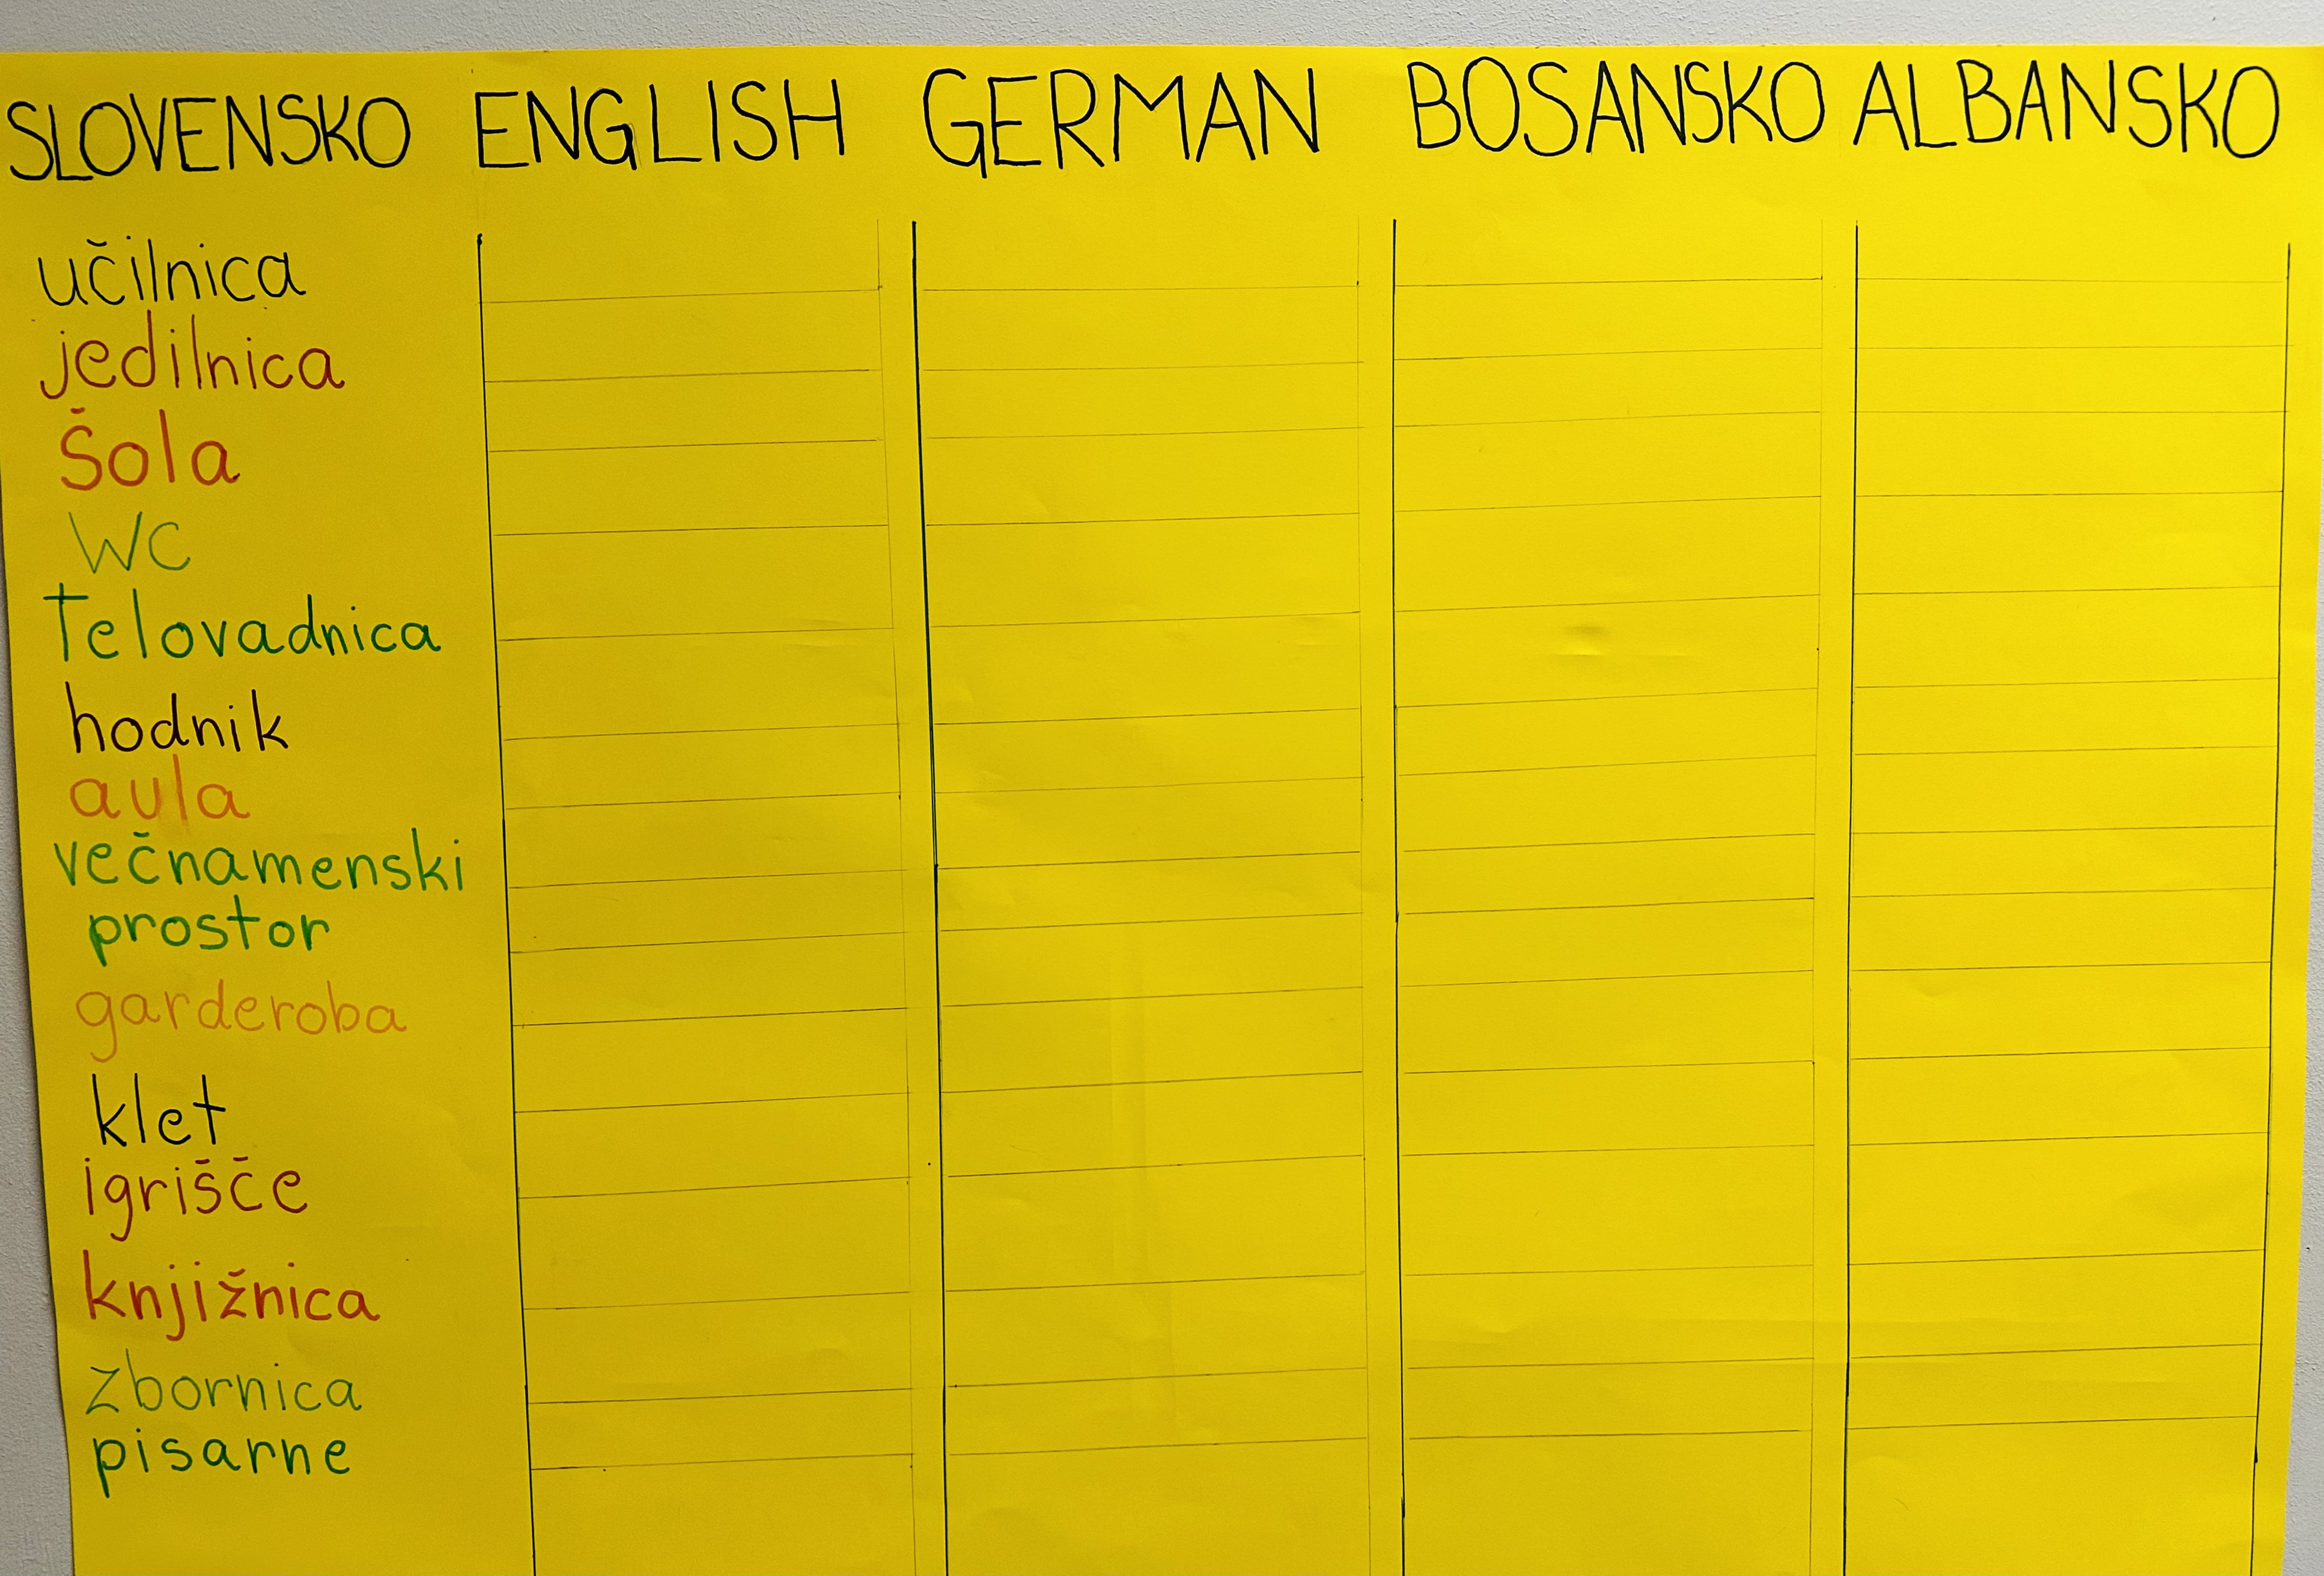 SLOVENSKO ENGLISH GERMAN BOSANSKO ALBANSKO
učilnica
jedilnica
Šola
WC
Telovadnica
hodnik
avla
večnamenski
prostor
garderoba
klet
igrišče
knjižnica
zbornica
pisarne